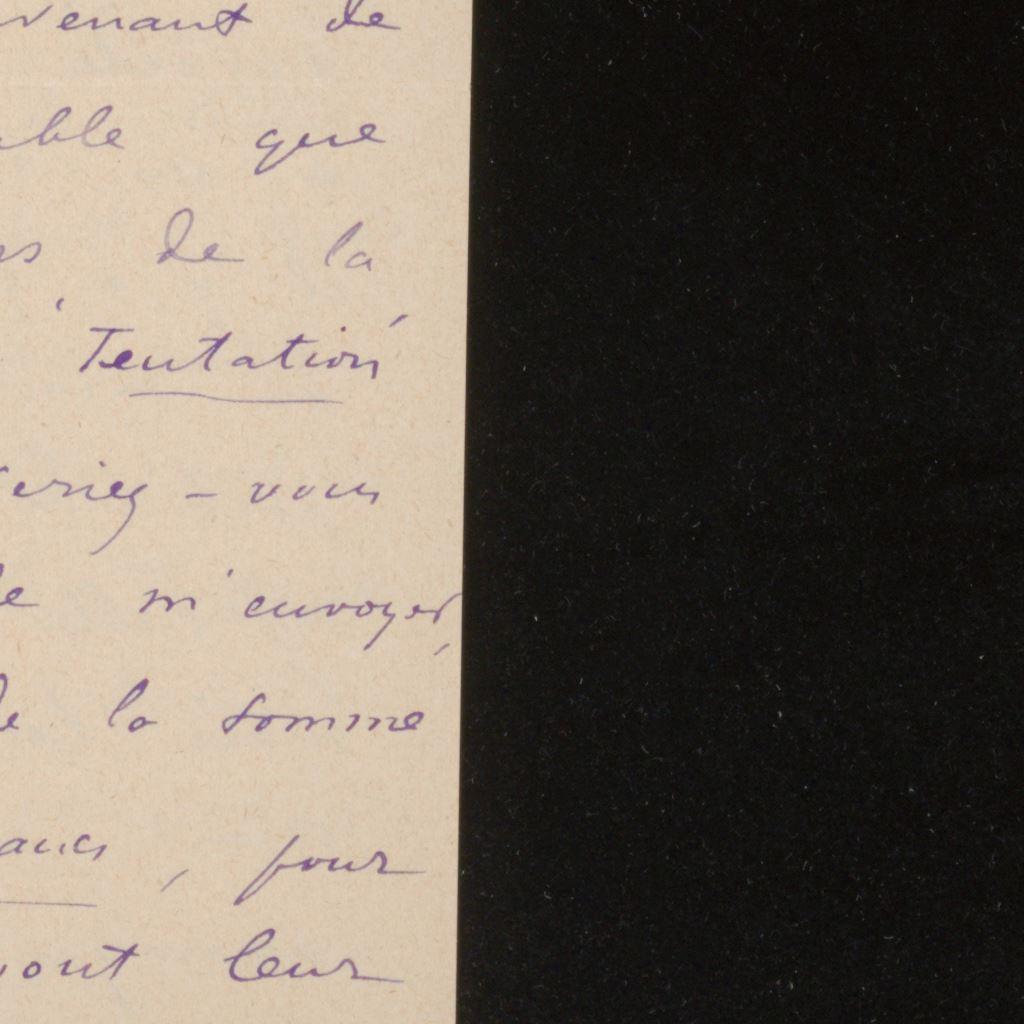 venant de
able que
s de la
'Tentation'
eriez-vous
de m'envoyer,
de la somme
ancs, pour
vont leur